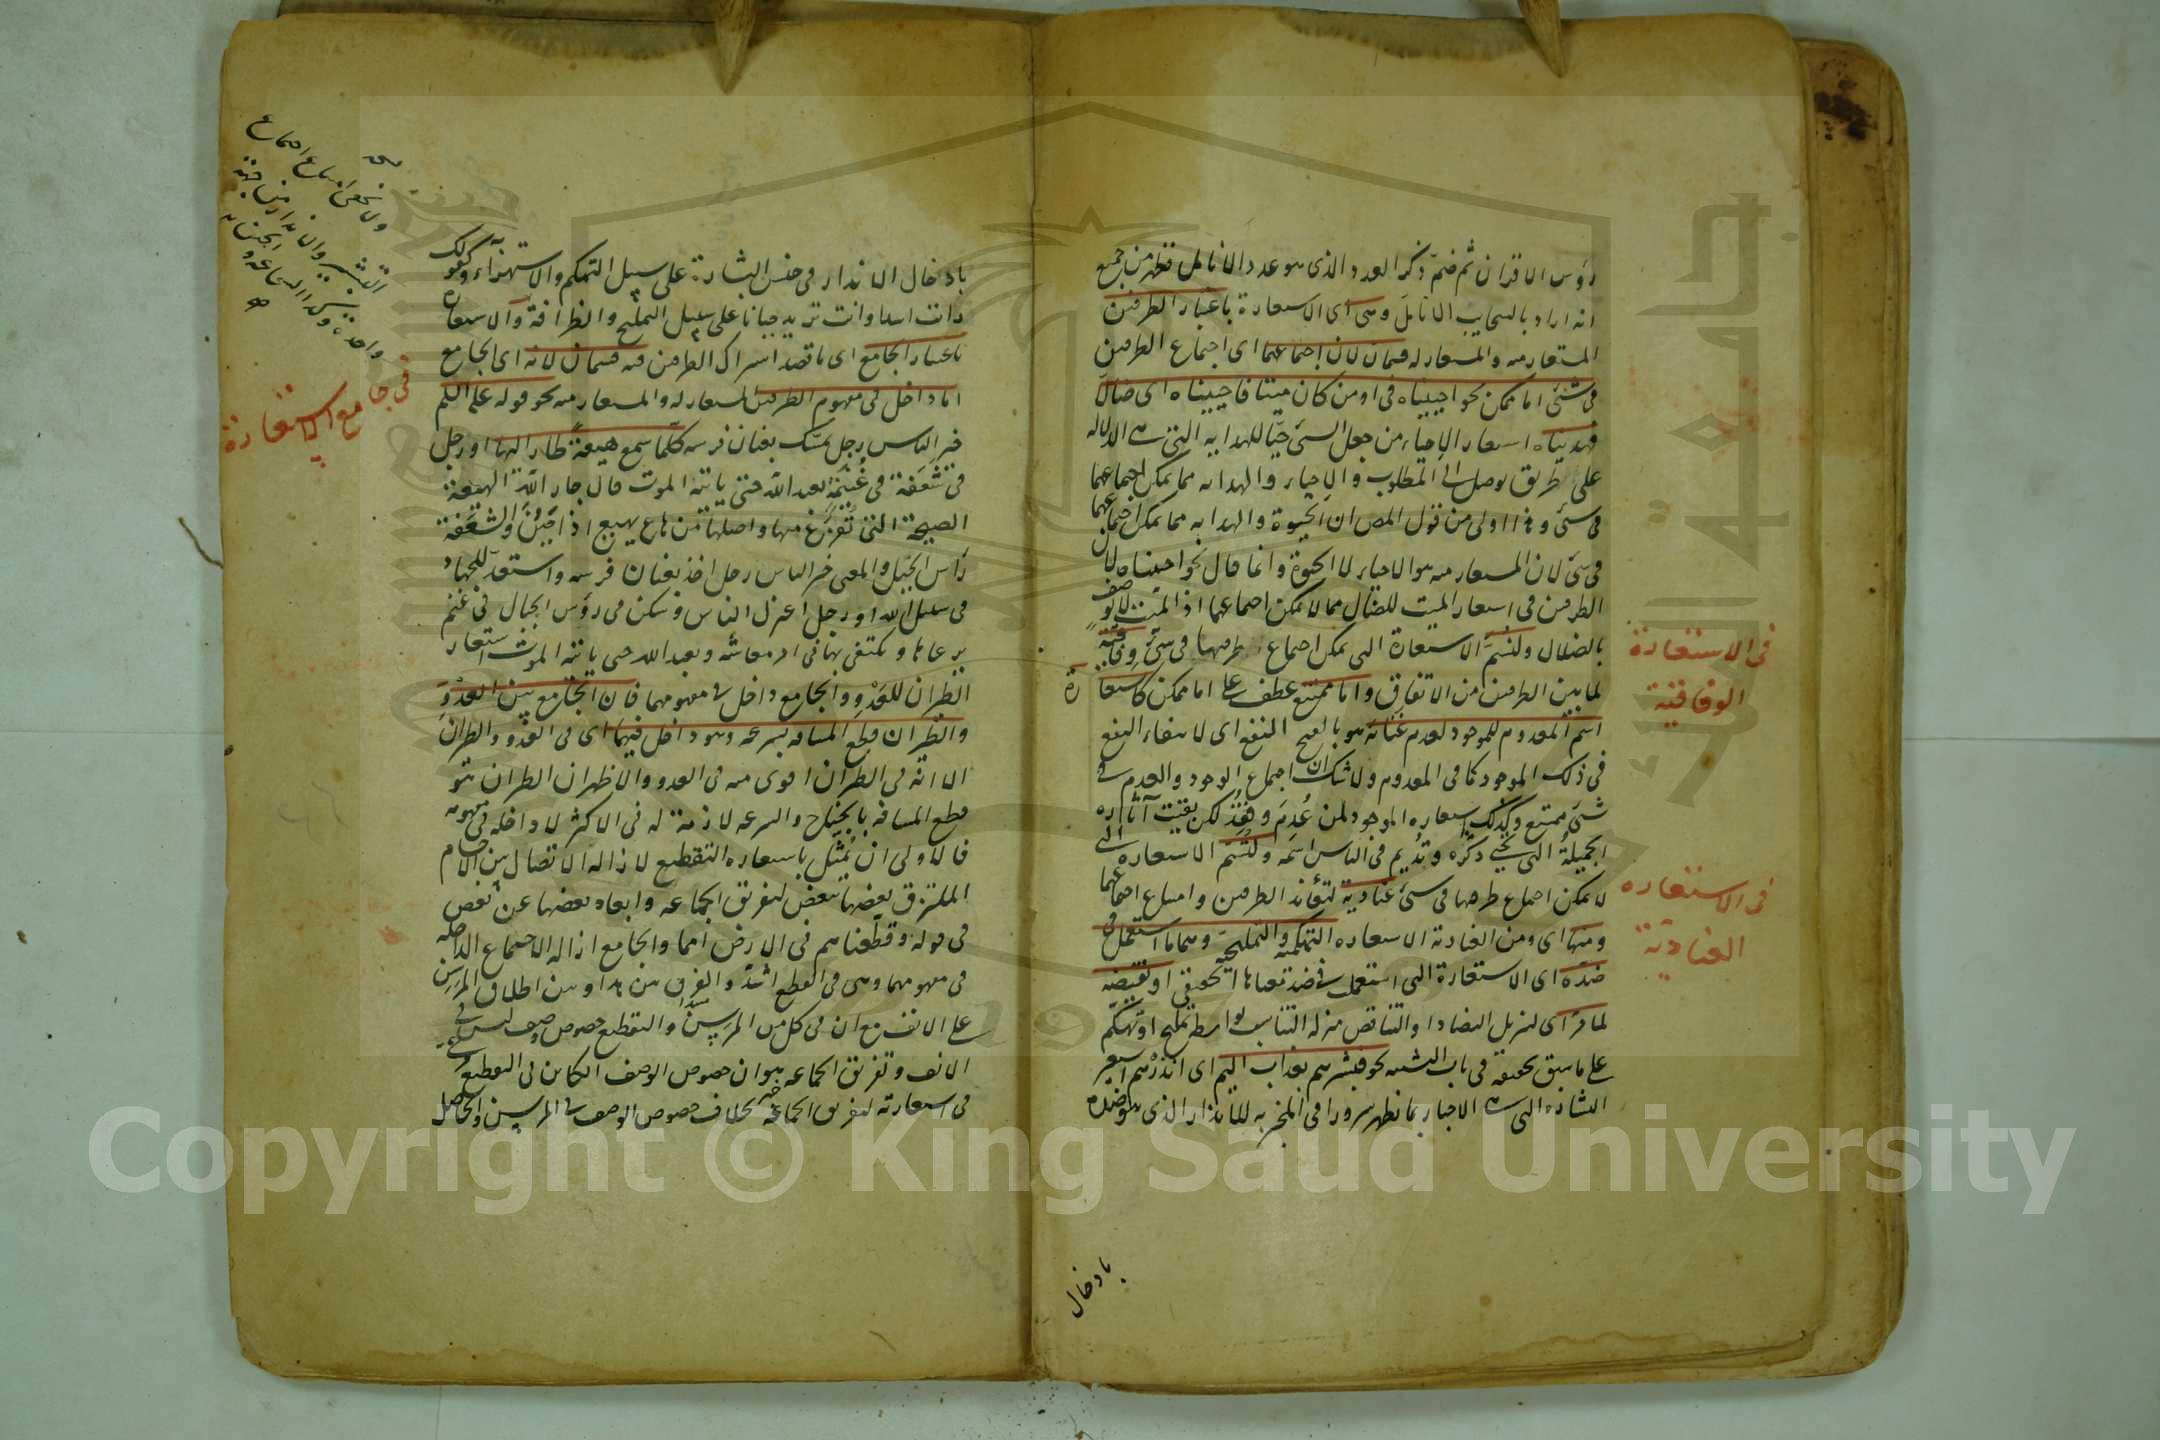 رؤس الاقران ثم ضم ذكر العدد الذى هو عدد الانامل فظهر من جميع
انه اراد بالسحايب الانامل وهى اى الاستعارة باعتبار الطرفين
المستعار منه والمستعار له قسمان لان اجتماعهما اى اجتماع الطرفين
فى شئ اما ممكن نحو احييناه فى او من كان ميتا فاحييناه اى ضالا
فهديناه استعار الاحياء من جعل الشئ حيا للهداية التى هى الدلالة
على طريق يوصل الى المطلوب والاحياء والهداية مما يمكن اجتماعهما
فى شئ وهذا اولى من قول المص ان الحيوة والهداية مما يمكن اجتماعهما
فى شئ لان المستعار منه هو الاحياء لا الحيوة وانما قال نحو احييناه لان
الطرفين فى استعارة الميت للضال مما لا يمكن اجتماعهما اذ الميت لا يوصف
بالضلال ولتسم الاستعارة التى يمكن اجتماع طرفيها فى شئ وفاقية
لما بين الطرفين من الاتفاق واما ممتنع عطف على اما ممكن كاستعارة
اسم المعدوم للموجود لعدم غنائه هو بالفتح النفع اى لانتفاء النفع
فى ذلك الموجود كما فى المعدوم ولا شك ان اجتماع الوجود والعدم فى
شئ ممتنع وكذلك استعارة الموجود لمن عدم وفقد لكن بقيت آثاره
الجميلة التى تحيى ذكره وتديم فى الناس اسمه ولتسم الاستعارة التى
لا يمكن اجتماع طرفيها فى شئ عنادية لتعاند الطرفين وامتناع اجتماعهما
ومنها اى ومن العنادية الاستعارة التهكمية والتمليحية وهما ما استعمل فى
ضده اى الاستعارة التى استعملت فى ضد معناها الحقيقى او نقيضه
لما مر اى لتنزيل التضاد او التناقض منزلة التناسب بواسطة تمليح او تهكم
على ما سبق تحقيقه فى باب التشبيه نحو فبشرهم بعذاب اليم اى انذرهم استعير
البشارة التى هى الاخبار بما يظهر سرورا فى المخبر به للانذار الذى هو ضده
فى الاستعارة
الوفاقية
فى الاستعاره
العنادية
بادخال
بادخال الانذار فى جنس البشارة على سبيل التهكم والاستهزاء وكقولك
رأيت اسدا وانت تريد جبانا على سبيل التمليح والظرافة والاستعارة
باعتبار الجامع اى ما قصد اشتراك الطرفين فيه قسمان لانه اى الجامع
اما داخل فى مفهوم الطرفين المستعار له والمستعار منه نحو قوله علم
خير الناس رجل يمسك بعنان فرسه كلما سمع هيعة طار اليها او رجل
فى شعفة فى غنيمة يعبد الله حتى ياتيه الموت قال جار الله الهيعة
الصيحة التى تفزع منها واصلها من هاع يهيع اذا جبن والشعفة
رأس الجبل والمعنى خير الناس رجل اخذ بعنان فرسه واستعد للجهاد
فى سبيل الله او رجل اعتزل الناس وسكن فى رؤس الجبال فى غنم
يرعاها ويكتفى بها فى امر معاشه ويعبد الله حتى ياتيه الموت استعار
الطيران للعدو والجامع داخل فى مفهومهما فان الجامع بين العدو
والطيران قطع المسافة بسرعة وهو داخل فيهما اى فى العدو والطيران
الا انه فى الطيران اقوى منه فى العدو والاظهر ان الطيران هو
قطع المسافة بالجناح والسرعة لازمة له فى الاكثر لا داخلة فى مفهومه
فالاولى ان يمثل باستعارة التقطيع لازالة الاتصال بين الاجسام
الملتزق بعضها ببعض لتفريق الجماعة وابعاد بعضها عن بعض
فى قوله وقطعناهم فى الارض امما والجامع ازالة الاجتماع الداخلة
فى مفهومهما وهى فى القطع اشد والفرق بين هذا وبين اطلاق المرسن
على الانف مع ان فى كل من المرسن والتقطيع خصوص وصف ليس فى
الانف وتفريق الجماعة هو ان خصوص الوصف الكائن فى التقطيع
فى استعارته لتفريق الجماعة بخلاف خصوص الوصف فى المرسن والحاصل
ولا يخفى امتناع اجتماع
التبشير والانذار من جهة
واحدة وكذا الشجاعة و
الجبن
فى جامع الاستعارة
Copyright © King Saud University